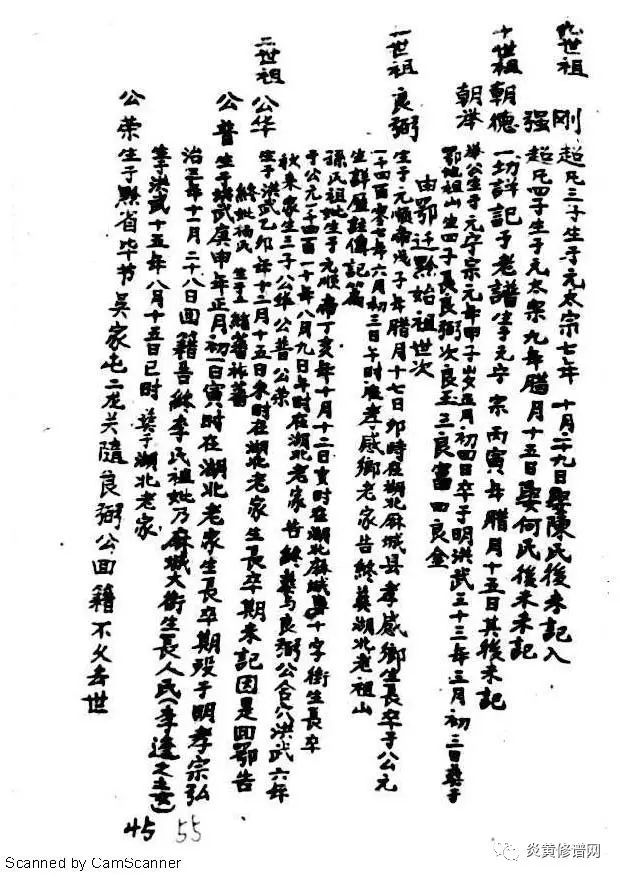 九世祖
刚 超凡三子生于元太宗七年 十月二九日娶陳氏後未記入
强 超凡四子生于元太宗九年腊月十五日娶何氏後未未記
十世祖 朝德 一切詳記于老譜生于元宁宗丙寅年腊月十五日其後未記
朝举 举公生于元宁宗元年甲子岁五月初四日卒于明洪武三十三年三月初三日葬于
鄂地祖山生四子長良弼次良玉三良富四良金
由鄂迁黔始祖世次
一世祖 良弼 生于元順帝戊子年腊月十七日卯時在湖北麻城县孝感鄉生長卒于公元
一千四百零七年六月初三日午时在孝感鄉老家告終葬湖北老祖山
生詳歷註傳記篇
孫氏祖妣生于元順帝丁亥年十月十二日亥时在湖北麻城十字街生長卒
于公元一千四百一十年八月九日午时在湖北老家告終葬与良弼公合穴洪武六年
秋来家生三子公华公普公荣
二世祖 公华 生于洪武乙卯年十二月十五日未时在湖北老家生長卒期未記因是回鄂告
終妣杨氏 生子
公普 生于洪武庚申年正月初一日寅时在湖北老家生長卒期殁于明孝宗弘
治三年十一月二十八日回籍告終李氏祖妣乃麻城大街生長人民(李逢之女)
筆于洪武十五年八月十五日已时 葬于湖北老家
公荣 生于黔省毕节吴家屯二龙关隨良弼公回籍不久去世
45 55
炎黄修谱网
Scanned by CamScanner